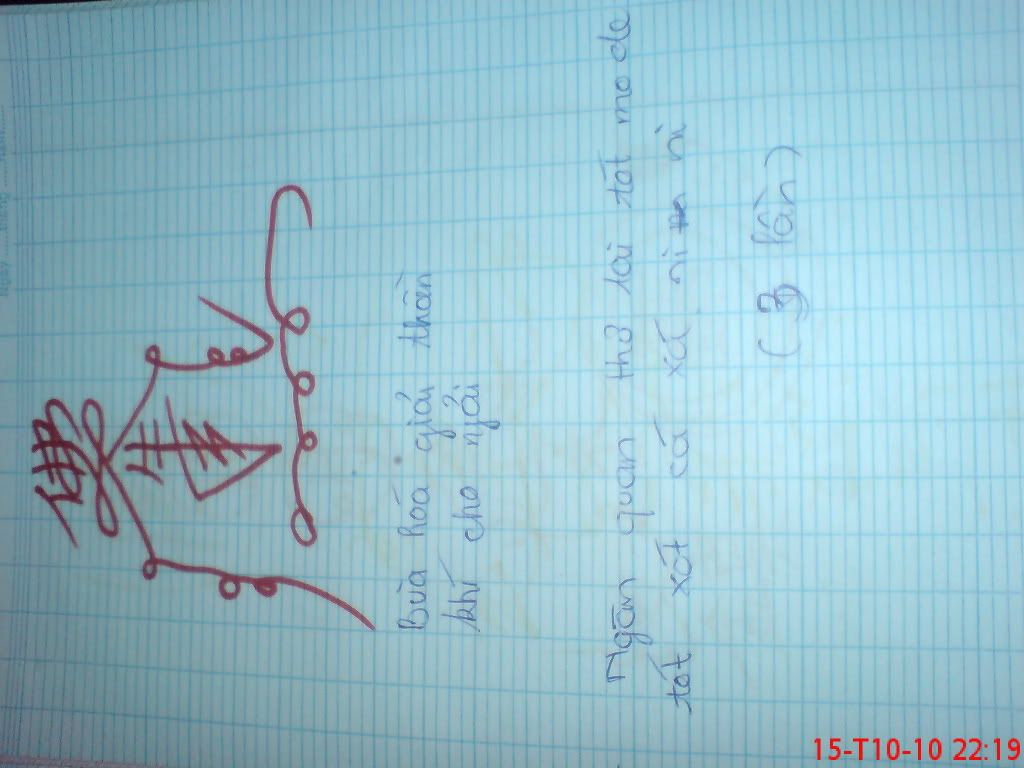 Bùa hóa giải thần
khí cho ngải
Ngân quan thơ lai tót mo de
tót xót cá xá ni ni
(3 lần)
15-T10-10 22:19